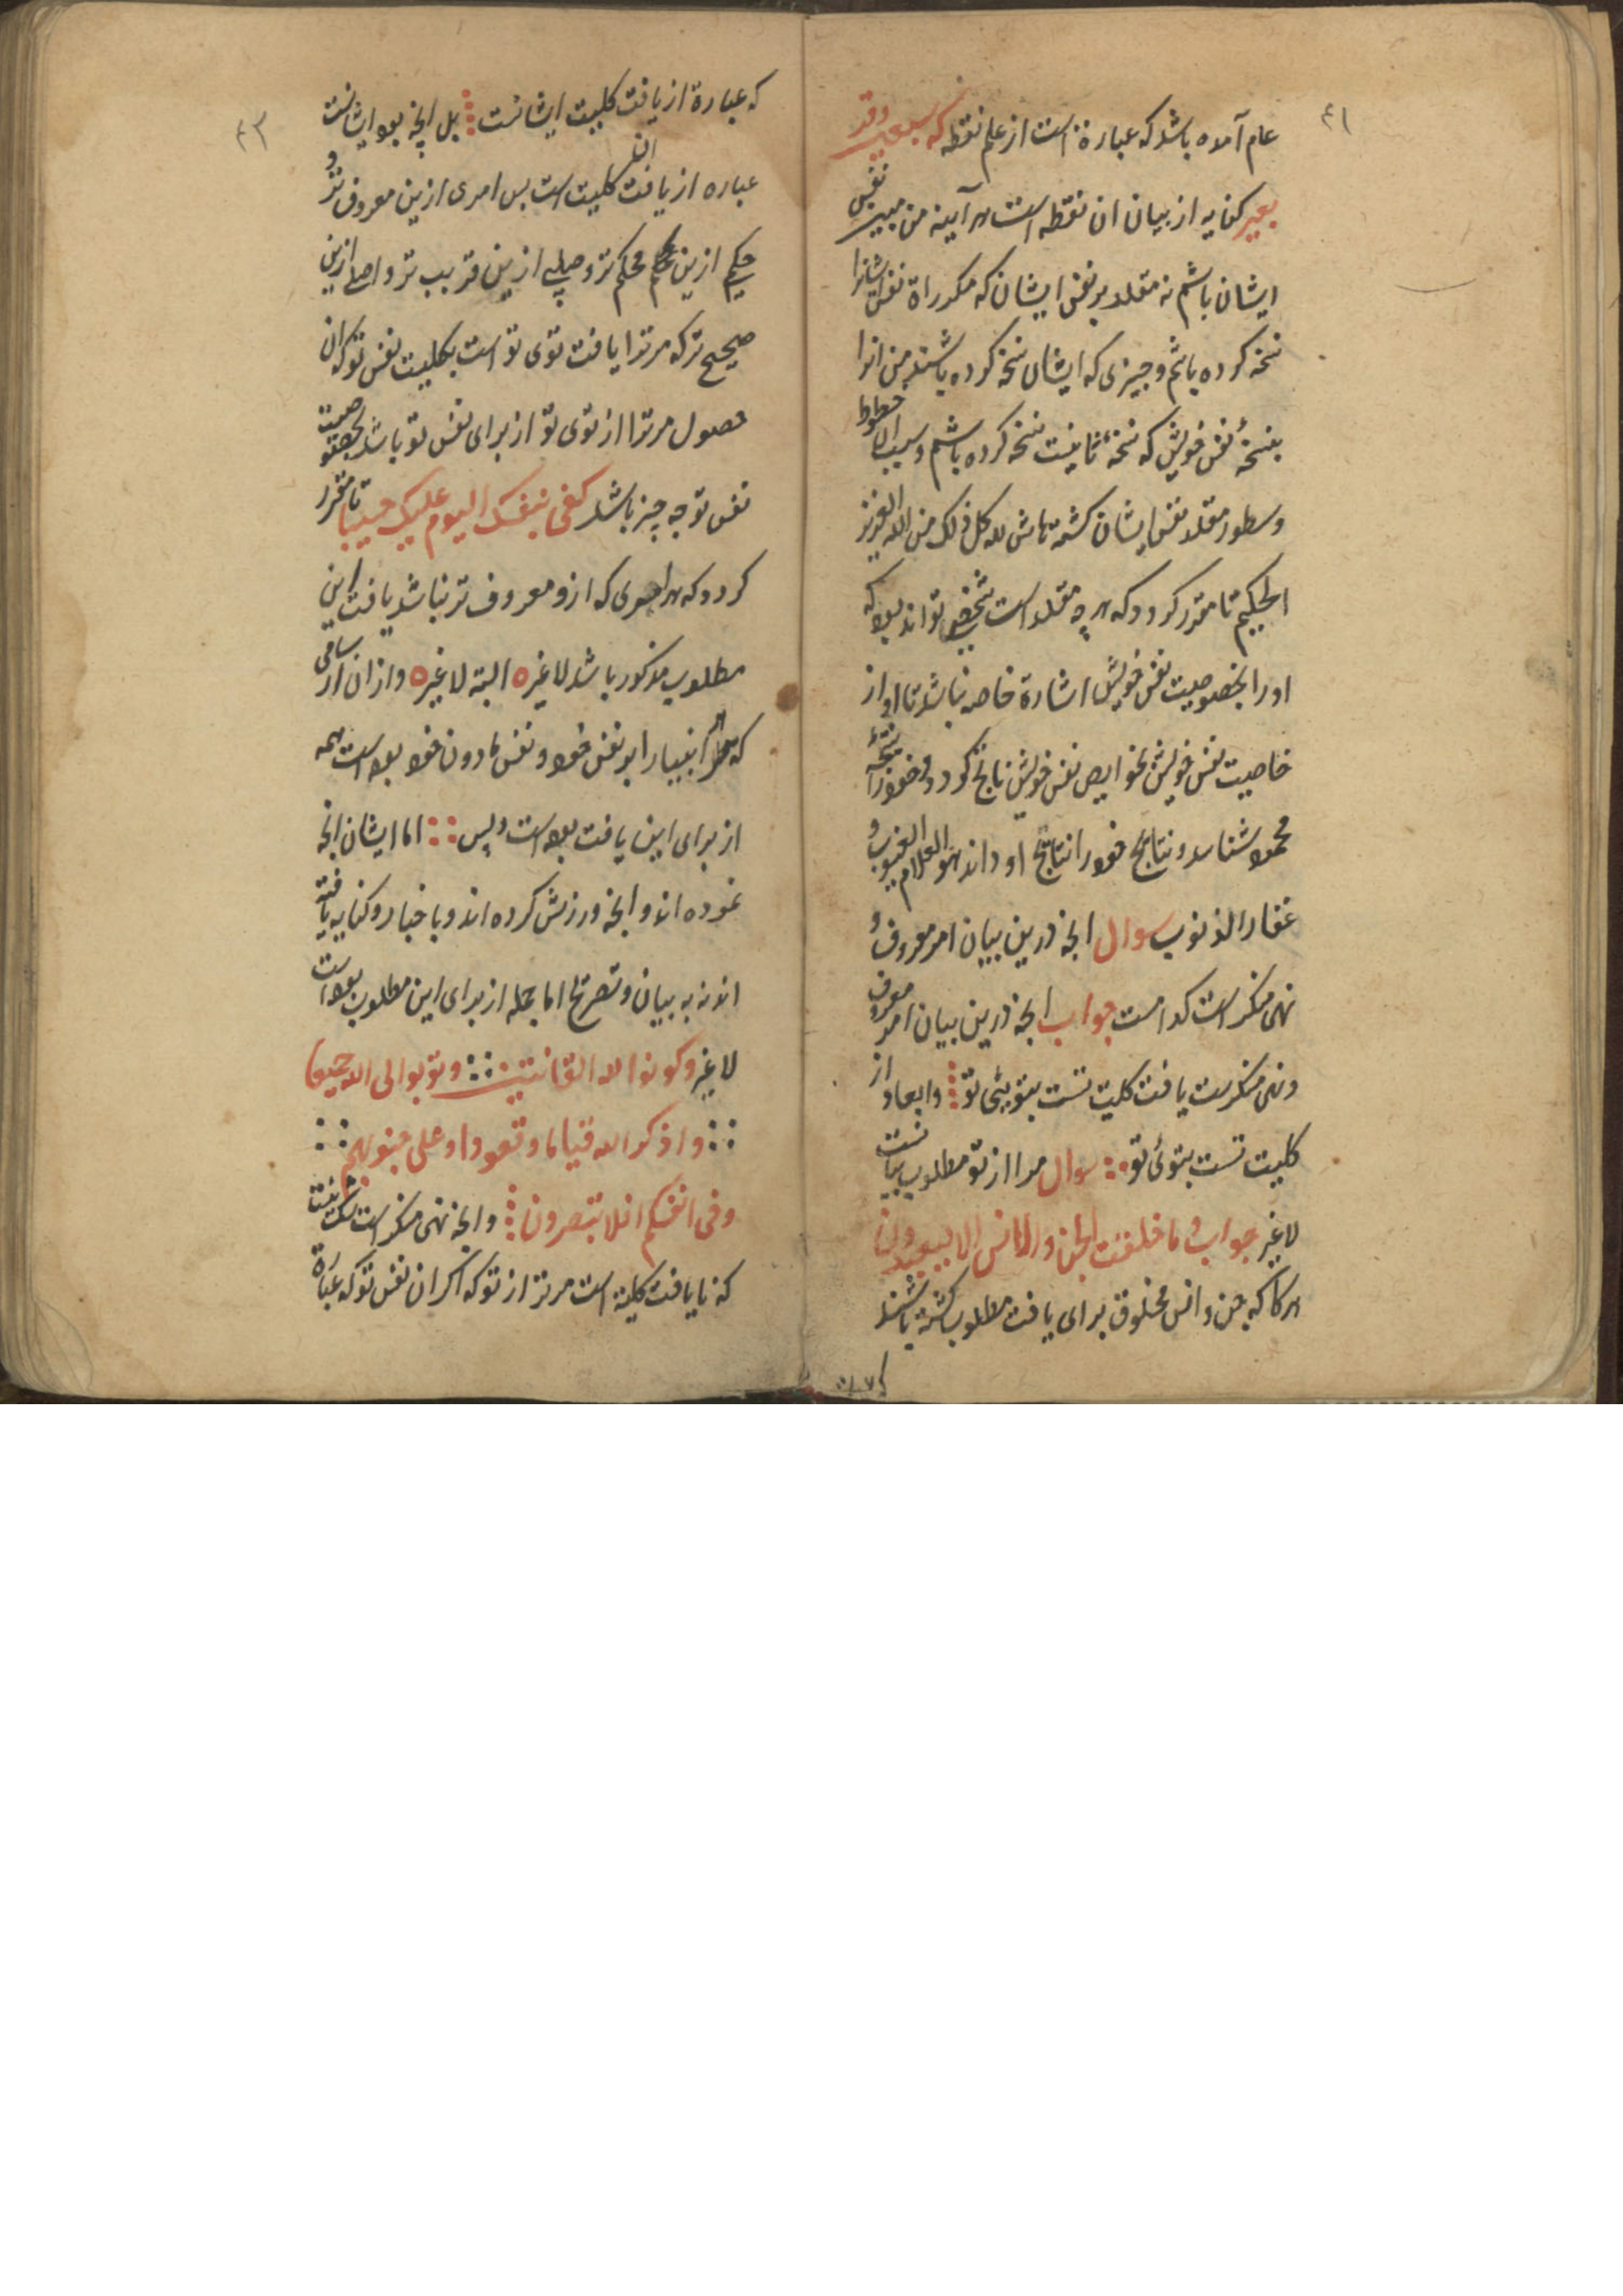 ٤١
عام آمده باشد که عبارة است از علم نقطه که
بعیر کنایه از بیان ان نقطه است هر آینه من مبین نفس
ایشان باشم نه مقلد بر نفس ایشان که مکرراة نفس ایشانرا
نسخه کرده باشم و چیزی که ایشان نسخه کرده باشند من انرا
بنسخهٔ نفس خویش که نسخهٔ ثانیست نسخه کرده باشم و بسبب ان خطوط
و سطور مقلد نفس ایشان کشته حاش لله کل ذلک من الله العزیز
الحکیم تا مقرر کردد که هر چه مقلد است شخصی تواند بود که
او را بخصوصیت نفس خویش اشارة خاصه نباشد تا او از
خاصیت نفس خویش بخواص نفس خویش ناتج کردد و خود را نتیجهٔ
محمود شناسد و نتایج خود را نتایج او داند هو العلام الغیوب و
غفار الذنوب سوال انچه درین بیان امر معروف و
نهی منکر است کدامست جواب انچه درین بیان امر معروف
و نهی منکرست یافت کلیت تست بتوئی تو وابعاد از
کلیت تست بتوئی تو سوال مرا از تو مطلوب بیانست
لا غیر جواب و ما خلقت الجن والانس الا لیعبدون
هرکاه که جن و انس مخلوق برای یافت مطلوب کشته باشند
٤٢
که عبارة از یافت کلیت ایشانست بل انچه بود ایشانست
عباره از یافت کلیت است پس امری ازین معروف تر و
حکم ازین محکم تر و صلی ازین قریب تر و اصلی ازین
صحیح تر که مر ترا یافت توی تو است بکلیت نفس تو که ان
حصول مر ترا از توی تو از برای نفس تو باشد بخصوصیت
نفس تو چه چیز باشد کفی بنفسک الیوم علیک حسیبا تا مقرر
کردد که هر امری که ازو معروف تر نباشد یافت این
مطلوب مذکور باشد لا غیره البته لا غیره و از ان
که انبیا را بر نفس خود و نفس مادون خود بوده است همه
از برای این یافت بوده است و بس اما ایشان انچه
نموده اند و انچه ورزش کرده اند و باخبار و کنایه یافته
اند نه به بیان و تصریح اما جمله از برای این مطلوب بوده است
لا غیر و کونوا لله القانتین و توبوا الی الله جمیعا
و اذکر الله قیاما و قعودا و علی جنوبهم
و فی انفسکم افلا تبصرون و انچه نهی منکر است
که نایافت کلیة است مر ترا از تو که اکر ان نفس تو که عبارة